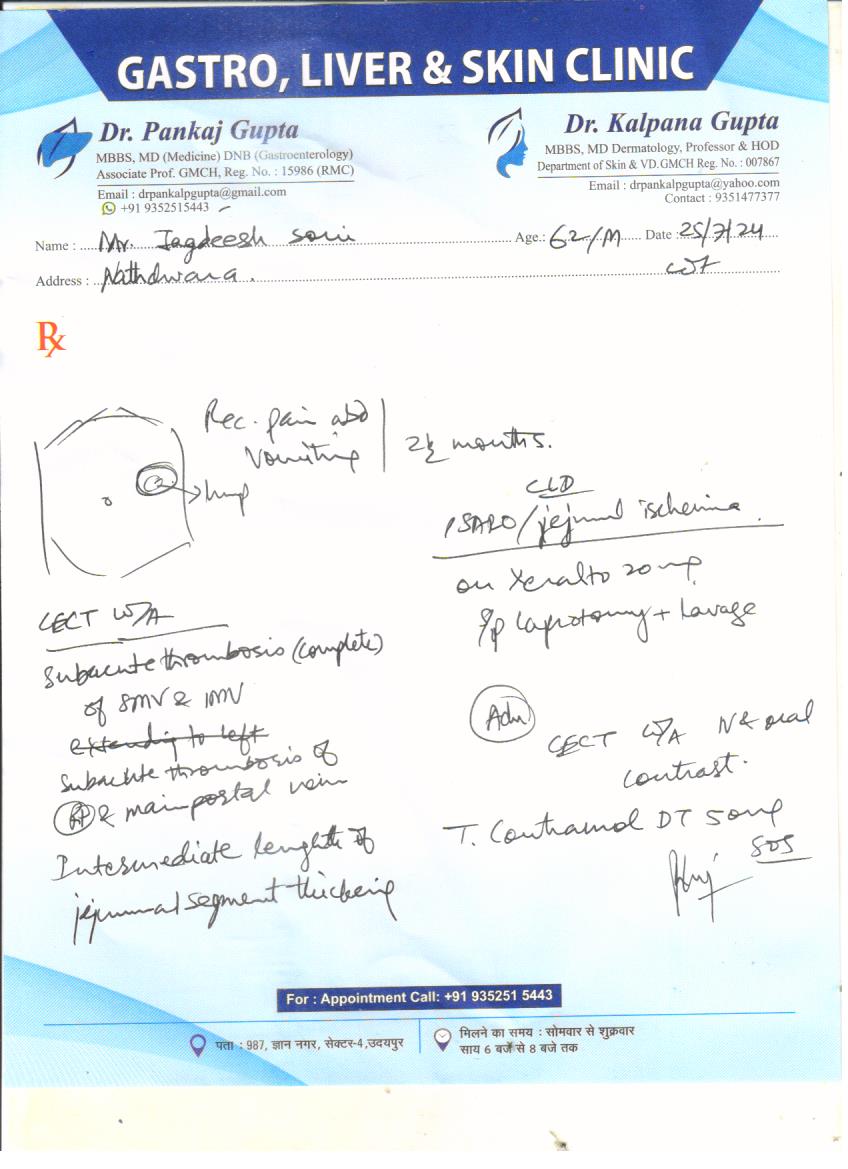 GASTRO, LIVER & SKIN CLINIC
Dr. Pankaj Gupta
MBBS, MD (Medicine) DNB (Gastroenterology)
Associate Prof. GMCH, Reg. No. : 15986 (RMC)
Email : drpankalpgupta@gmail.com
+91 9352515443
Dr. Kalpana Gupta
MBBS, MD Dermatology, Professor & HOD
Department of Skin & VD. GMCH Reg. No. : 007867
Email : drpankalpgupta@yahoo.com
Contact : 9351477377
Name : Mr. Jagdeesh Soni Age.: 62/M Date : 25/7/24
Address : Nathdwara.
Rx
Rec. pain abd
Vomiting
2½ months.
lump
CLD
/jejunal ischemia
on Xeralto 20mg
S/p Laprotomy + Lavage
CECT W/A
Subacute thrombosis (complete)
of SMV & IMV
extending to left
Subacute thrombosis of
& main portal vein
Intermediate lenghth of
jejunnal segment thickening
Adv
CECT W/A & oral
contrast.
T. Contramol DT 50mg
SOS
For : Appointment Call: +91 935251 5443
पता : 987, ज्ञान नगर, सेक्टर-4, उदयपुर
मिलने का समय : सोमवार से शुक्रवार
सायं 6 बजे से 8 बजे तक